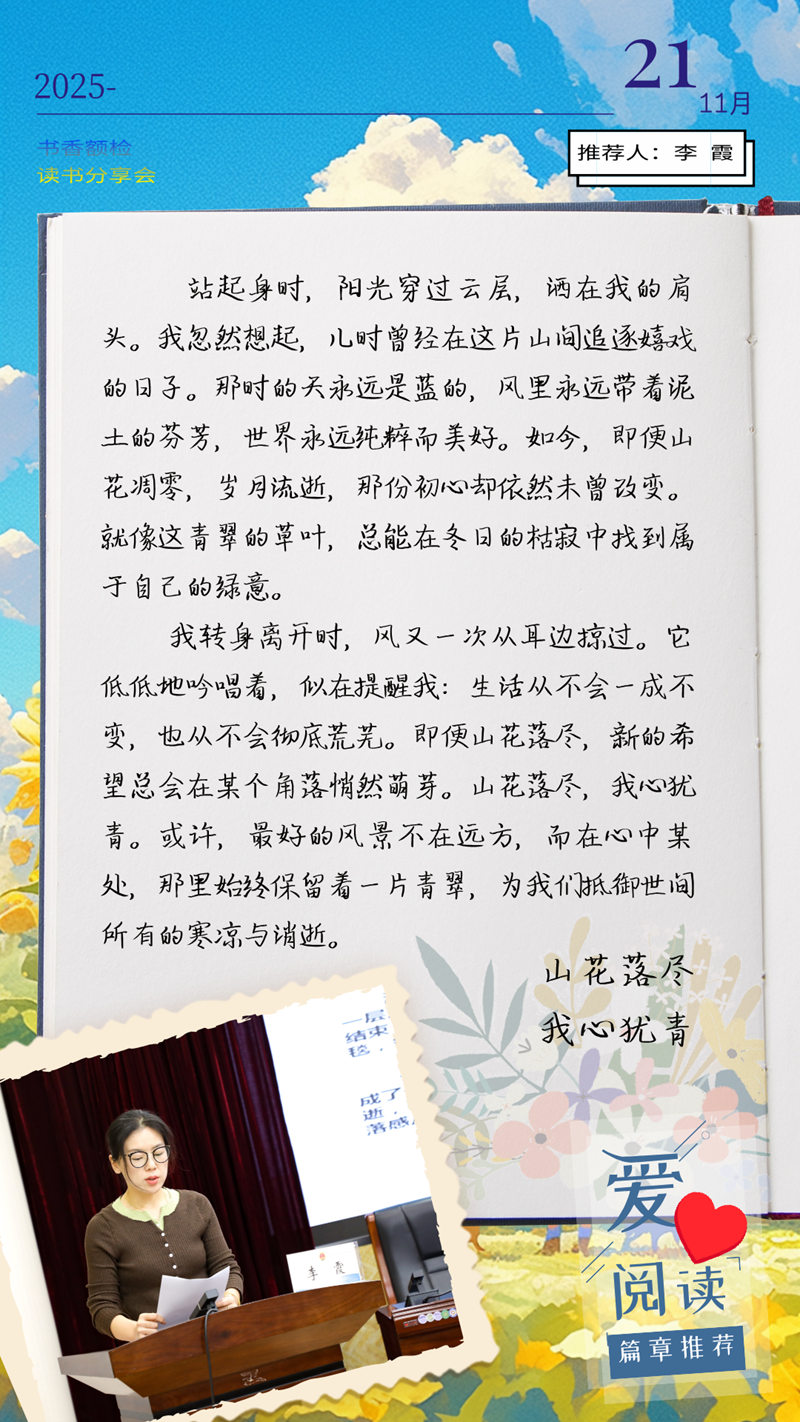 2025-
21
11月
书香额检
读书分享会
推荐人：李 霞
站起身时，阳光穿过云层，洒在我的肩
头。我忽然想起，儿时曾经在这片山间追逐嬉戏
的日子。那时的天永远是蓝的，风里永远带着泥
土的芬芳，世界永远纯粹而美好。如今，即便山
花凋零，岁月流逝，那份初心却依然未曾改变。
就像这青翠的草叶，总能在冬日的枯寂中找到属
于自己的绿意。
我转身离开时，风又一次从耳边掠过。它
低低地吟唱着，似在提醒我：生活从不会一成不
变，也从不会彻底荒芜。即便山花落尽，新的希
望总会在某个角落悄然萌芽。山花落尽，我心犹
青。或许，最好的风景不在远方，而在心中某
处，那里始终保留着一片青翠，为我们抵御世间
所有的寒凉与消逝。
山花落尽
我心犹青
一层
结束
毯，
成了
逝，
落感
李 霞
爱
阅读
篇章推荐